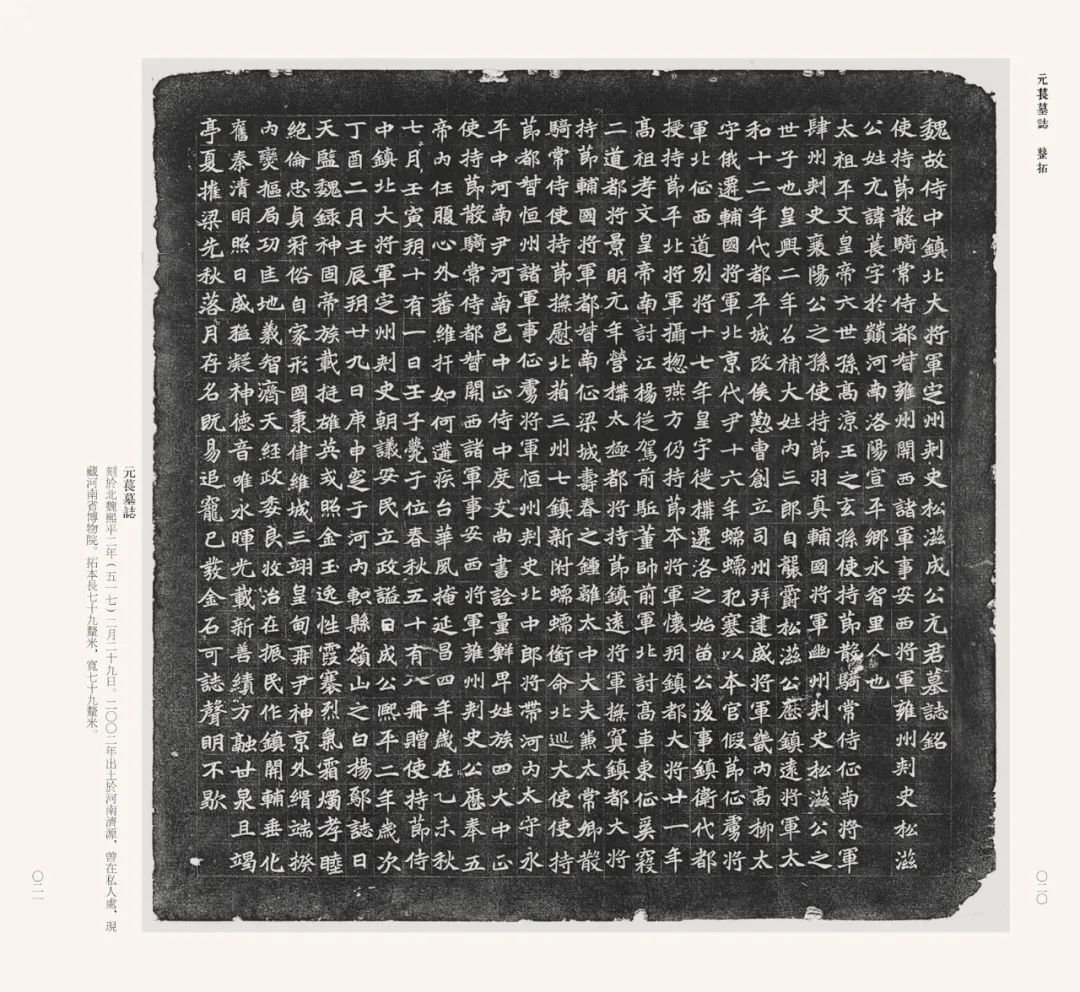 元萇墓誌 整拓
〇二〇
魏故侍中鎮北大將軍定州刺史松滋成公元君墓誌銘
使持節散騎常侍都督雍州關西諸軍事安西將軍雍州刺史松滋
公姓元諱萇字於巔河南洛陽宣平鄉永智里人也
太祖平文皇帝六世孫高涼王之玄孫使持節散騎常侍征南將軍
肆州刺史襄陽公之孫使持節羽真輔國將軍幽州刺史松滋公之
世子也皇興二年名補大姓內三郎自襲爵松滋公歷鎮遠將軍太
和十二年代都平城改俟懃曹創立司州拜建威將軍畿內高柳太
守俄遷輔國將軍北京代尹十六年蠕蠕犯塞以本官假節征虜將
軍北征西道別將十七年皇宇徙構遷洛之始留公後事鎮衛代都
授持節平北將軍攝揔燕方仍持節本將軍懷朔鎮都大將廿一年
高祖孝文皇帝南討江揚從駕前駈董帥前軍北討高車東征奚寇
二道都將景明元年營構太極都將持節鎮遠將軍撫冥鎮都大將
持節輔國將軍都督南征梁城壽春之鍾離太中大夫兼太常卿散
騎常侍使持節撫慰北葙三州七鎮新附蠕蠕銜命北巡大使使持
節都督恒州諸軍事征虜將軍恒州刺史北中郎將帶河內太守永
平中河南尹河南邑中正侍中度支尚書詮量鮮卑姓族四大中正
使持節散騎常侍都督關西諸軍事安西將軍雍州刺史公歷奉五
帝內任腹心外蕃維扞如何遘疾台華風掩延昌四年歲在乙未秋
七月壬寅朔十有一日壬子薨于位春秋五十有八冊贈使持節侍
中鎮北大將軍定州刺史朝議安民立政謚曰成公熙平二年歲次
丁酉二月壬辰朔廿九日庚申窆于河內軹縣嶺山之白楊鄔誌曰
天監魏錄神固帝族載挺雄英或照金玉逸性霞褰烈氣霜燭孝睦
絕倫忠貞符俗自家形國秉律維城三翊皇甸再尹神京外緝端揆
內變樞局功匡地羲智濟天經政委良牧治在振民作鎮開輔垂化
舊秦清明照日威猛凝神德音唯永暉光載新善績方融甘泉且竭
亭夏摧梁先秋落月存名既易追寵已叢金石可誌聲明不歇
元萇墓誌
刻於北魏熙平二年(五一七)二月二十九日。二〇〇二年出土於河南濟源，曾在私人處，現
藏河南省博物院。拓本長七十九釐米，寬七十九釐米。
〇二一